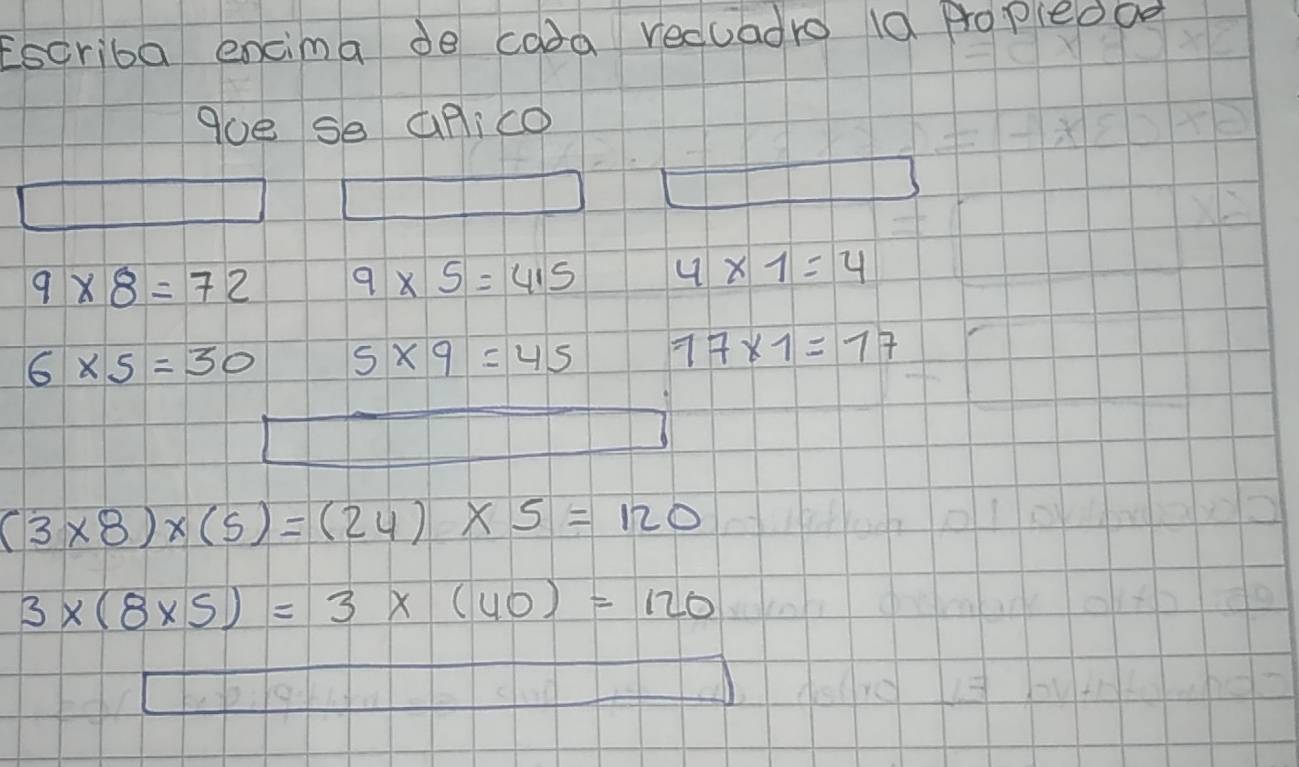 Escriba encima de cada recuadro la propiedad
que se aplico
9 × 8 = 72 9 × 5 = 45 4 × 1 = 4
6 × 5 = 30 5 × 9 = 45 17 × 1 = 17
(3 × 8) × (5) = (24) × 5 = 120
3 × (8 × 5) = 3 × (40) = 120